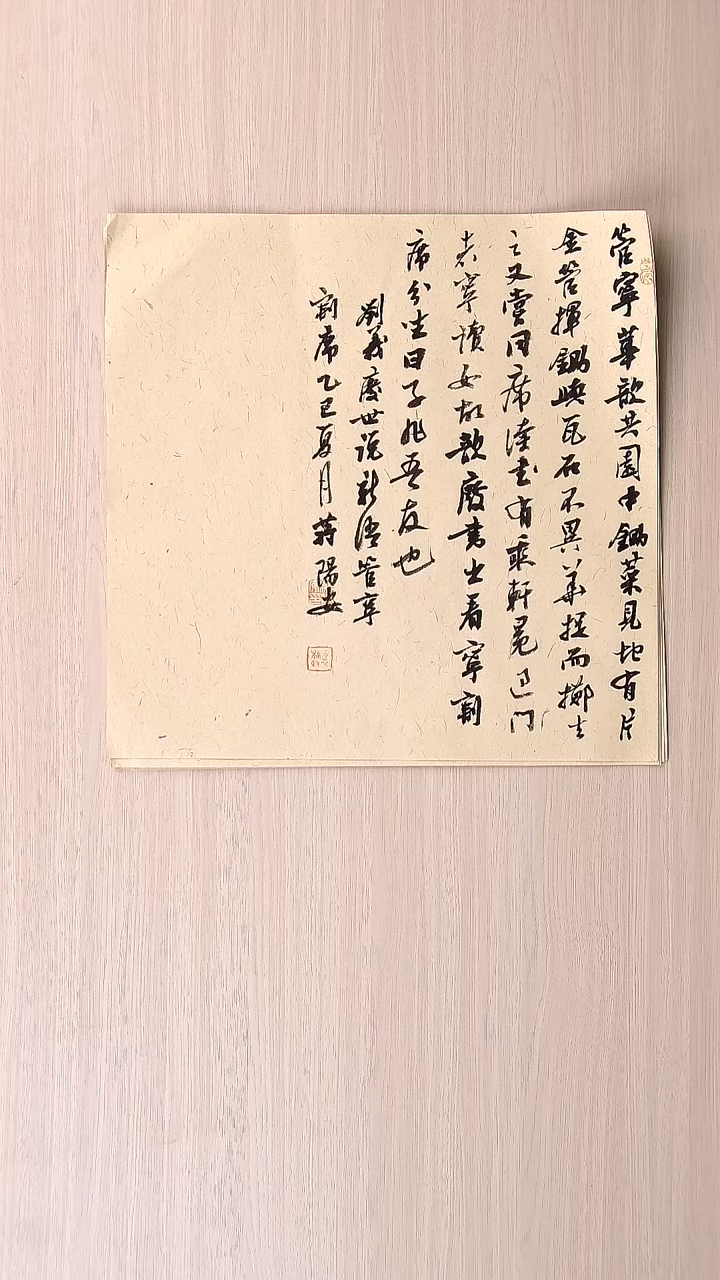 管寧華歆共園中鋤菜見地有片
金管揮鋤與瓦石不異華捉而擲去
之又嘗同席讀書有乘軒冕過門
者寧讀如故歆廢書出看寧割
席分坐曰子非吾友也
劉義慶世說新語管寧
割席乙巳夏月蔣陽安